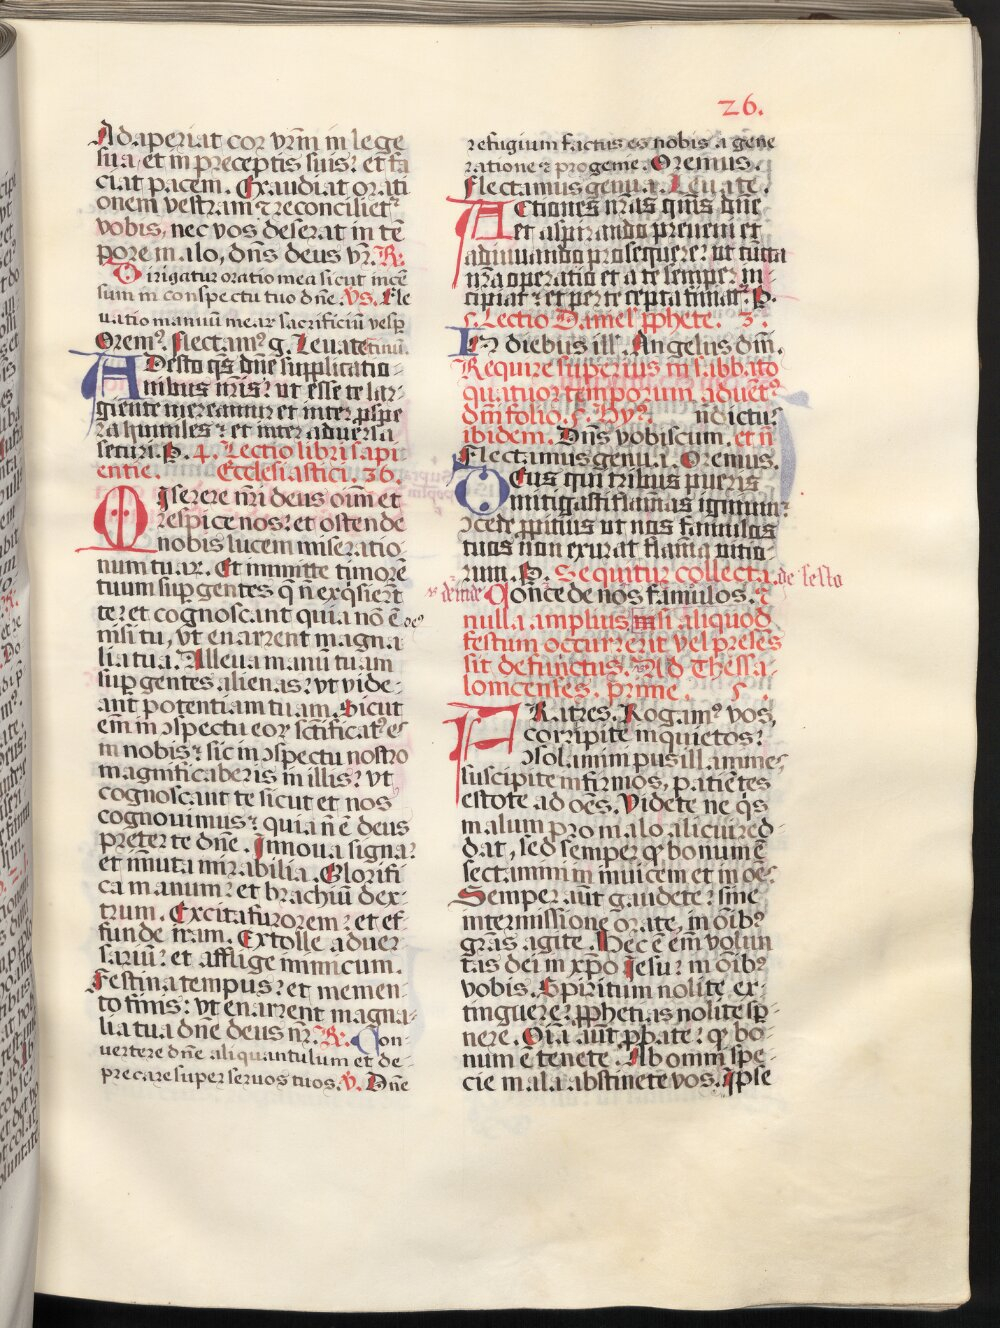 26.
Adaperiat cor vr̃m in lege
sua et in preceptis suis: et fa
ciat pacem. Exaudiat orati
onem vestram ⁊ reconcilietˀ
vobis, nec vos deserat in tē
pore malo, dñs deus vr̃. R:
Dirigatur oratio mea sicut incē
sum in conspectu tuo dñe. Vs. Ele
uatio manuū mearꝝ sacrificiū vesp̱
Oremˀ. Flectamˀ g. Leuate
Adesto q̃s dñe supplicatio-
nibus nr̃is: ut esse te lar-
giente mereamur et inter ꝓspe
ra humiles: et inter aduersa
securi. P. 4. Lectio libri sapi
entie. Ecclesiastici. 36.
Miserere nr̃i deus oīm et
respice nos: et ostende
nobis lucem miseratio
num tuarꝝ. Et inmitte timorē
tuum sup̱ gentes q̃ ñ exq̃sierūt
te: et cognoscant quia nō ē de9
nisi tu, vt enarrent magna-
lia tua. Alleua manū tuam
sup̱ gentes alienas: vt vide-
ant potentiam tuam. Sicut
eīm in ɔspectu eorꝝ sc̃tificat9 es
in nobis: sic in ɔspectu nostro
magnificaberis in illis: vt
cognoscant te sicut et nos
cognouimus: quia ñ ē deus
preter te dñe. Innoua signa:
et inmuta mirabilia. Glorifi
ca manum: et brachiū dex-
trum. Excita furorem: et ef-
funde iram. Extolle aduer
sariū: et afflige inimicum.
Festina tempus: et memen-
to finis: vt enarrent magna-
lia tua dñe deus nr̃. R: Con-
uertere dñe aliquantulum et de-
precare super seruos tuos. V. Dñe
refugium factus es nobis a gene
ratione ⁊ progenie. Oremus.
Flectamus genua. Leuate.
Actiones nr̃as quis dñe
et aspirando preueni et
adiuuando prosequere: ut cūcta
nr̃a operatio et a te semper in-
cipiat: et per te cepta finiatˀ. P.
5. Lectio Danielˢ ꝓphete. 3.
In diebus ill. Angelus dñi.
Require superius in sabbato
quatuor temporum aduētˀ
dñi folio. 5. Hyˀ. ñdictuˀ
ibidem. Dñs vobiscum. et ñ
Flectamus genua. Oremus.
Deus qui tribus pueris
mitigasti flam̃as ignium:
ɔcede ꝓpitius ut nos famulos
tuos non exurat flam̃a uitio-
rum. P. Sequitur collecta. de festo
⁊ deinde Qonēde nos famulos. ⁊
nulla amplius, nisi aliquod
festum occurrerit vel preses
sit defunctus. Ad Thessa
lonicenses. prime. 5.
Fratres. Rogamˀ vos,
corripite inquietos:
ɔsolamini pusillanimes
suscipite infirmos, patiētes
estote ad oēs. Videte ne q̃s
malum pro malo alicui red-
dat, sed semper q̃ bonum ē
sectamini in inuicem et in oēs
Semper aūt gaudete: sine
intermissione orate, in oībˀ
gr̃as agite. Hec ē eīm volun
tas dei in xp̃o Jesu: in oībˀ
vobis. Spiritum nolite ex-
tinguere: ꝓphetias nolite sp̱-
nere. Oīa aūt ꝓbate: q̃ bo-
num ē tenete. Ab omni spe-
cie mala abstinete vos. Ipse